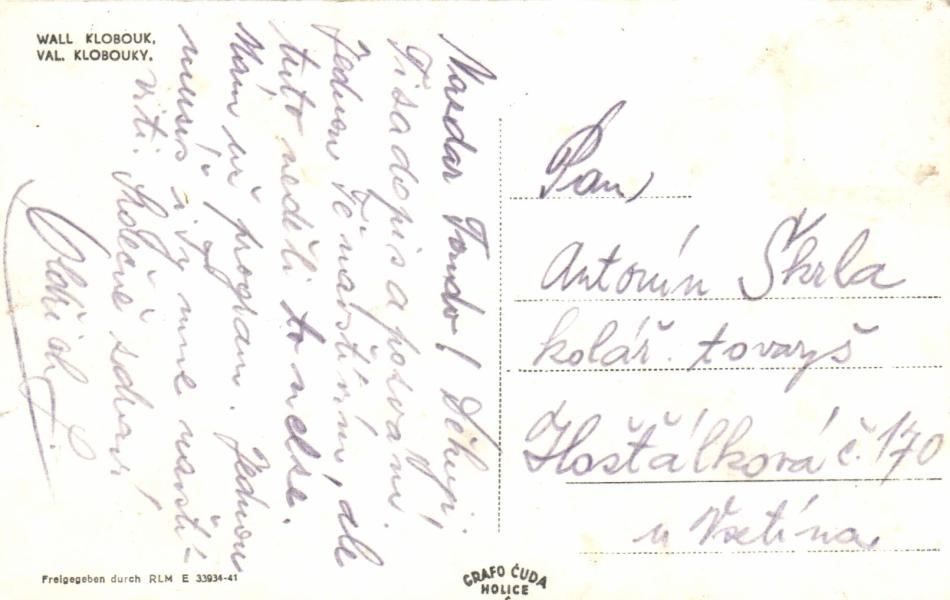 WALL KLOBOUK.
VAL. KLOBOUKY.
Nazdar Tondo! Děkuji
Ti za dopis a pozvání.
Jednou Tě navštívím, ale
tuto neděli to nelze.
Mám již program. Jednou
musíš i Ty mne navští-
viti. Srdečně zdraví
Oldřich
Pan
Antonín Škrla
kolář. tovaryš
Hošťálková č. 170
u Vsetína
Freigegeben durch RLM E 33934-41
GRAFO ČUDA
HOLICE